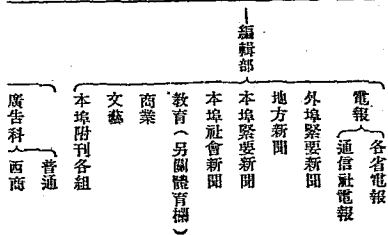 編輯部
電報
各省電報
通信社電報
外埠緊要新聞
地方新聞
本埠緊要新聞
本埠社會新聞
教育(另闢體育欄)
商業
文藝
本埠附刊各組
廣告科
普通
西商